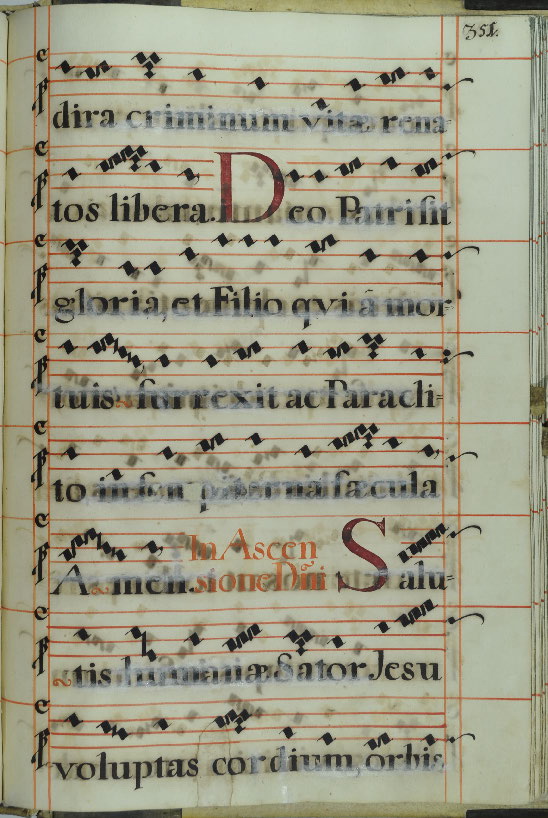 351.
dira criminum vitæ rena-
tos libera. Deo Patri sit
gloria, et Filio qui â mor-
tuis surrexit ac Paracli-
to in sem piternal sæcula
Amen. In Ascen
sione Dñi Salu-
tis humanæ Sator Jesu
voluptas cordium, orbis